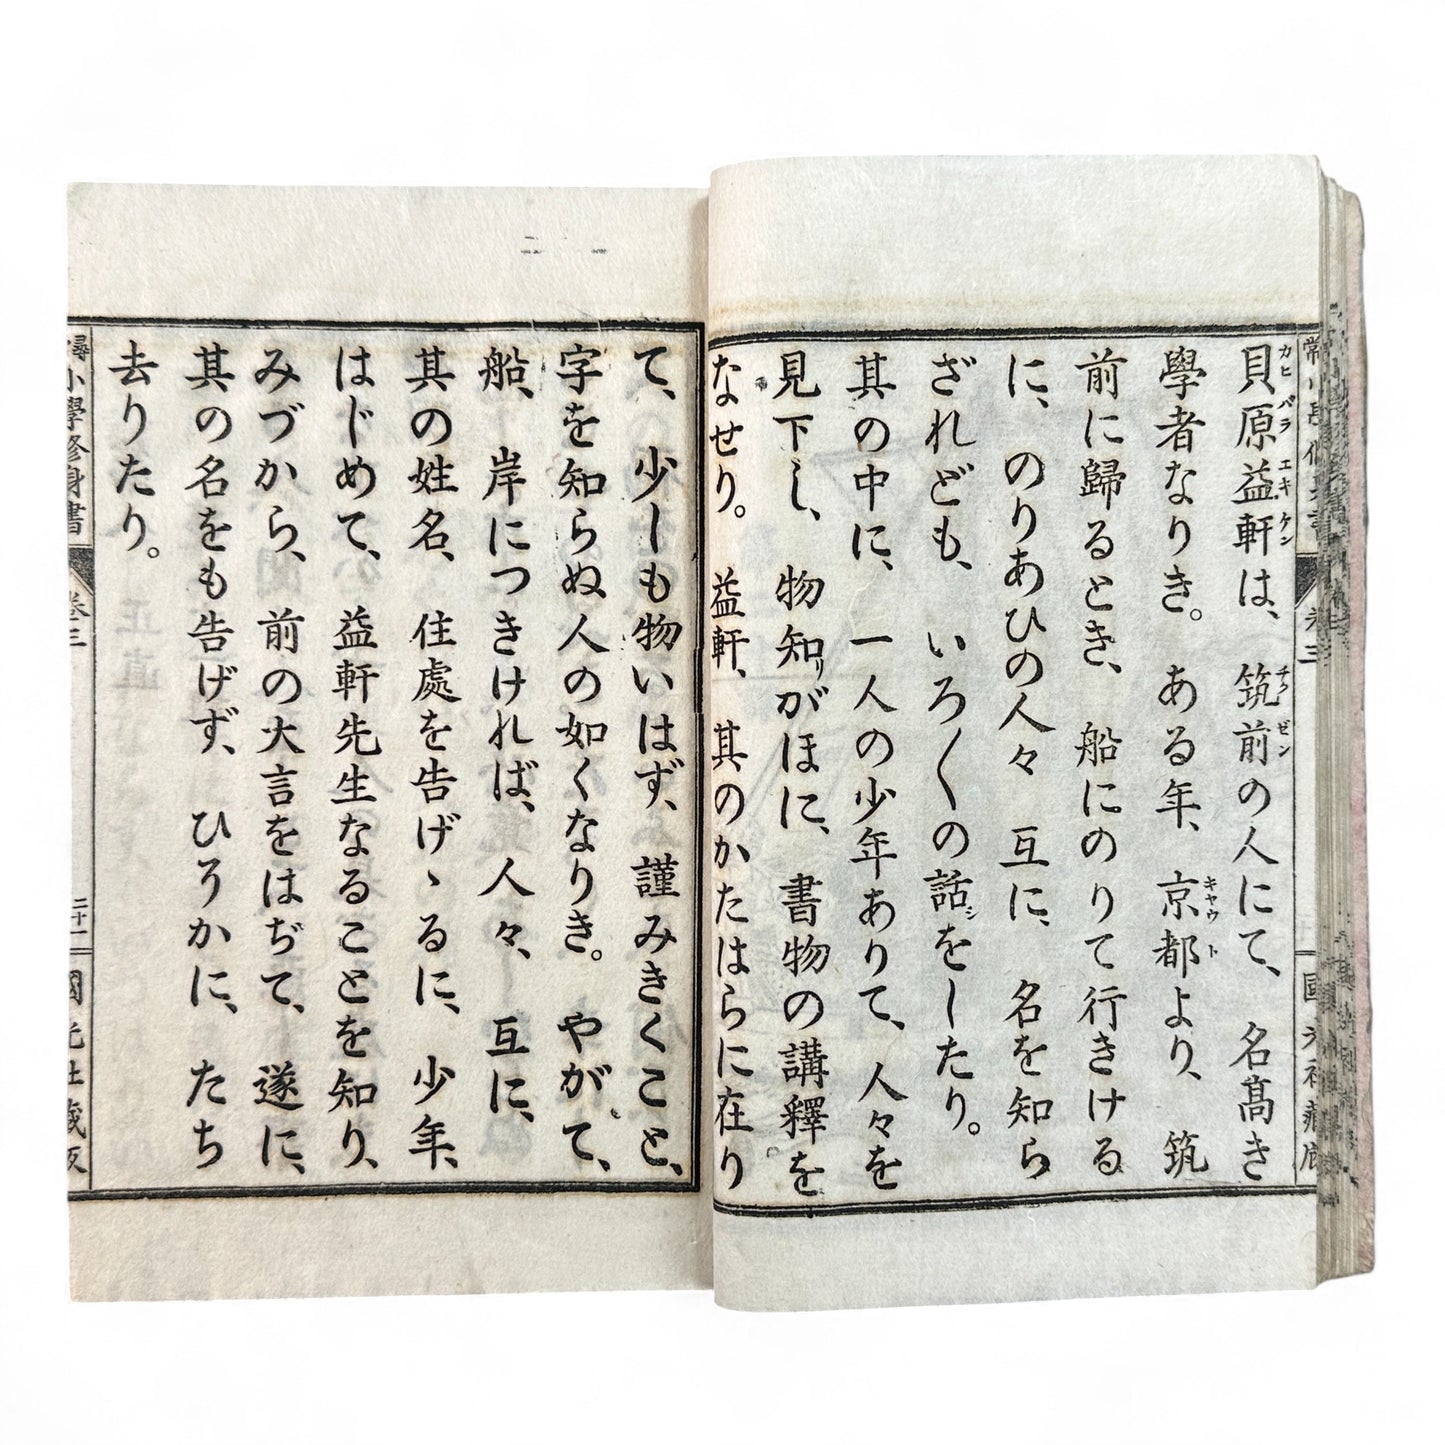 貝原益軒は、筑前の人にて、名髙き
カヒ バラ エキ ケン
チク ゼン
學者なりき。ある年、京都より、筑
キヤウト
前に歸るとき、船にのりて行きける
に、のりあひの人々互に、名を知ら
ざれども、いろ〱の話をしたり。
シ
其の中に、一人の少年ありて、人々を
見下し、物知りがほに、書物の講釋を
なせり。益軒、其のかたはらに在り
て、少しも物いはず、謹みきくこと、
字を知らぬ人の如くなりき。やがて、
船、岸につきければ、人々、互に、
其の姓名、住處を告げゝるに、少年、
はじめて、益軒先生なることを知り、
みづから、前の大言をはぢて、遂に、
其の名をも告げず、ひそかに、たち
去りたり。
小學修身書
卷三
二十一
國光社藏版